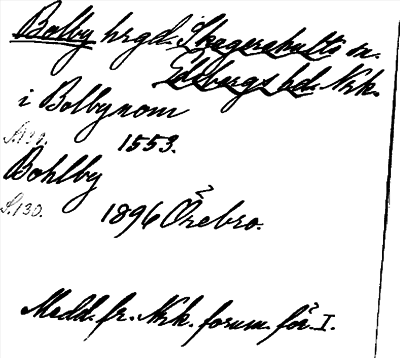 Bolby hrgd. Skagershults sn.
Edsbergs hd. Nrk.
i Bolbynom
1553.
Bohlby
S. 130.
1896 Örebro.
Medd. fr. Nrk. fornm. för. I.